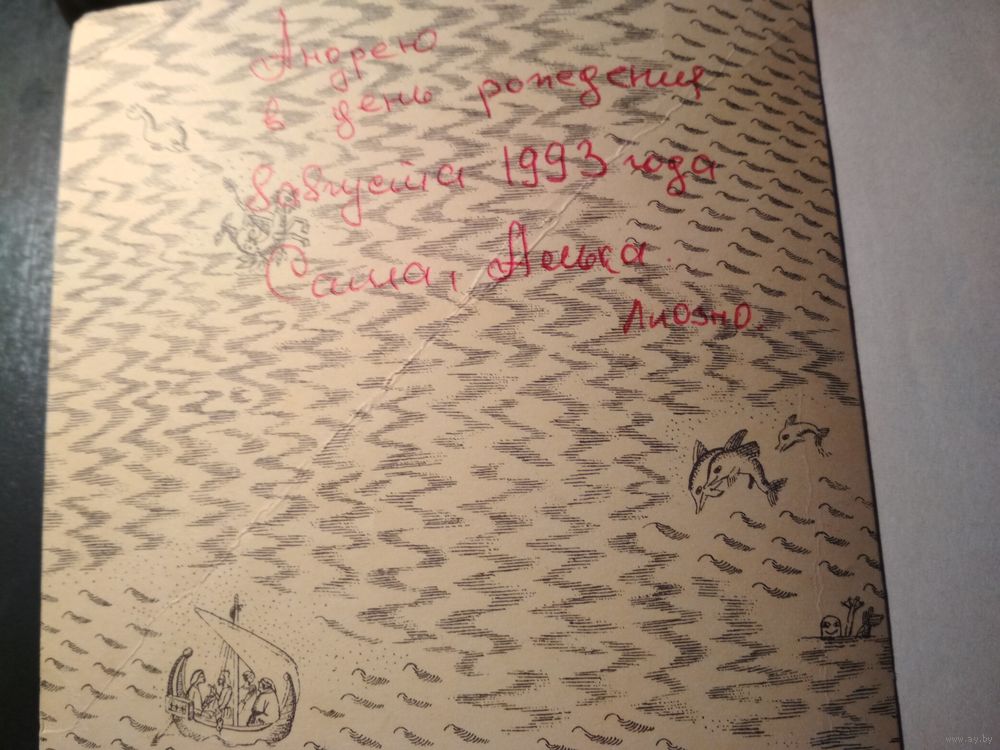 Андрею
в день рождения
8 августа 1993 года
Саша, Алька.
Лиозно.
www.ay.by